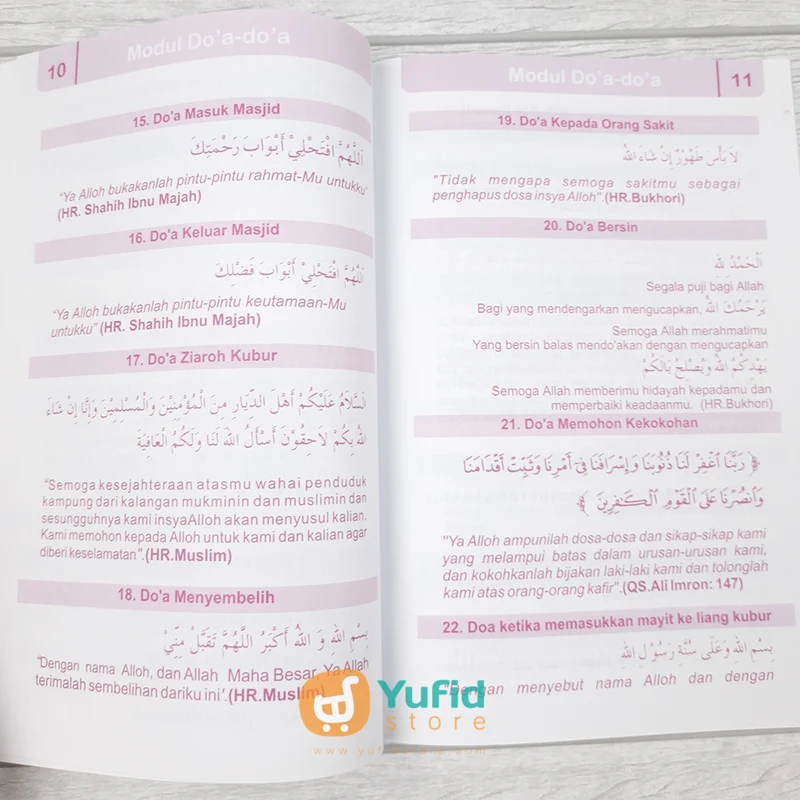 10
Modul Do'a-do'a
15. Do'a Masuk Masjid
اَللَّهُمَّ افْتَحْلِيْ أَبْوَابَ رَحْمَتِكَ
"Ya Alloh bukakanlah pintu-pintu rahmat-Mu untukku"
(HR. Shahih Ibnu Majah)
16. Do'a Keluar Masjid
اَللَّهُمَّ افْتَحْلِيْ أَبْوَابَ فَضْلِكَ
"Ya Alloh bukakanlah pintu-pintu keutamaan-Mu
untukku" (HR. Shahih Ibnu Majah)
17. Do'a Ziaroh Kubur
اَلسَّلاَمُ عَلَيْكُمْ أَهْلَ الدِّيَارِ مِنَ الْمُؤْمِنِيْنَ وَالْمُسْلِمِيْنَ وَإِنَّا إِنْ شَاءَ
اللهُ بِكُمْ لاَحِقُوْنَ أَسْأَلُ اللهَ لَنَا وَلَكُمُ الْعَافِيَةَ
"Semoga kesejahteraan atasmu wahai penduduk
kampung dari kalangan mukminin dan muslimin dan
sesungguhnya kami insyaAlloh akan menyusul kalian.
Kami memohon kepada Alloh untuk kami dan kalian agar
diberi keselamatan".(HR.Muslim)
18. Do'a Menyembelih
بِسْمِ اللهِ وَ اللهُ أَكْبَرُ اَللَّهُمَّ تَقَبَّلْ مِنِّيْ
"Dengan nama Alloh, dan Allah Maha Besar, Ya Allah
terimalah sembelihan dariku ini'.(HR.Muslim)
Modul Do'a-do'a
11
19. Do'a Kepada Orang Sakit
لاَ بَأْسَ طَهُوْرٌ إِنْ شَاءَ اللهُ
"Tidak mengapa semoga sakitmu sebagai
penghapus dosa insya Alloh".(HR.Bukhori)
20. Do'a Bersin
اَلْحَمْدُ لِلهِ
Segala puji bagi Allah
Bagi yang mendengarkan mengucapkan, يَرْحَمُكَ اللهُ
Semoga Allah merahmatimu
Yang bersin balas mendo'akan dengan mengucapkan
يَهْدِكُمُ اللهُ وَيُصْلِحُ بَالَكُمْ
Semoga Allah memberimu hidayah kepadamu dan
memperbaiki keadaanmu. (HR.Bukhori)
21. Do'a Memohon Kekokohan
﴿ رَبَّنَا ٱغْفِرْ لَنَا ذُنُوبَنَا وَإِسْرَافَنَا فِىٓ أَمْرِنَا وَثَبِّتْ أَقْدَامَنَا
وَٱنصُرْنَا عَلَى ٱلْقَوْمِ ٱلْكَٰفِرِينَ ﴾
"Ya Alloh ampunilah dosa-dosa dan sikap-sikap kami
yang melampui batas dalam urusan-urusan kami,
dan kokohkanlah bijakan laki-laki kami dan tolonglah
kami atas orang-orang kafir".(QS.Ali Imron: 147)
22. Doa ketika memasukkan mayit ke liang kubur
بِسْمِ اللهِ وَعَلَى سُنَّةِ رَسُوْلِ اللهِ
"Dengan menyebut nama Alloh dan dengan
Yufid
store